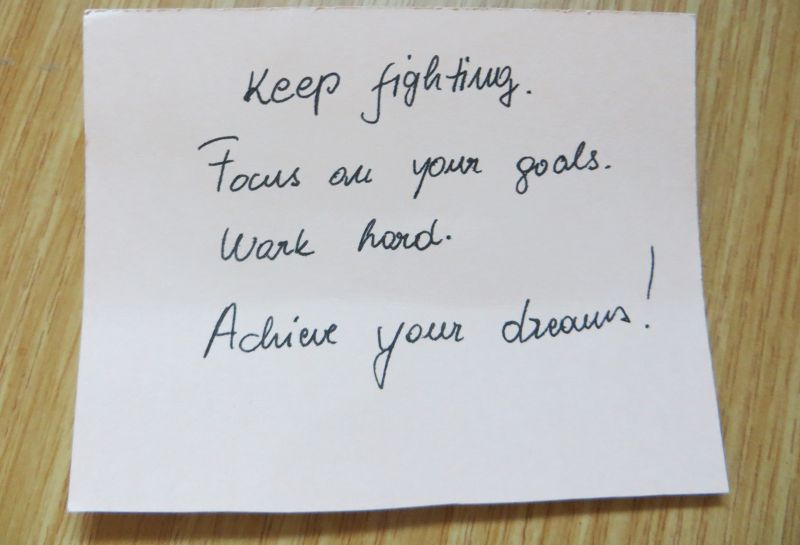 Keep fighting.
Focus on your goals.
Work hard.
Achieve your dreams!